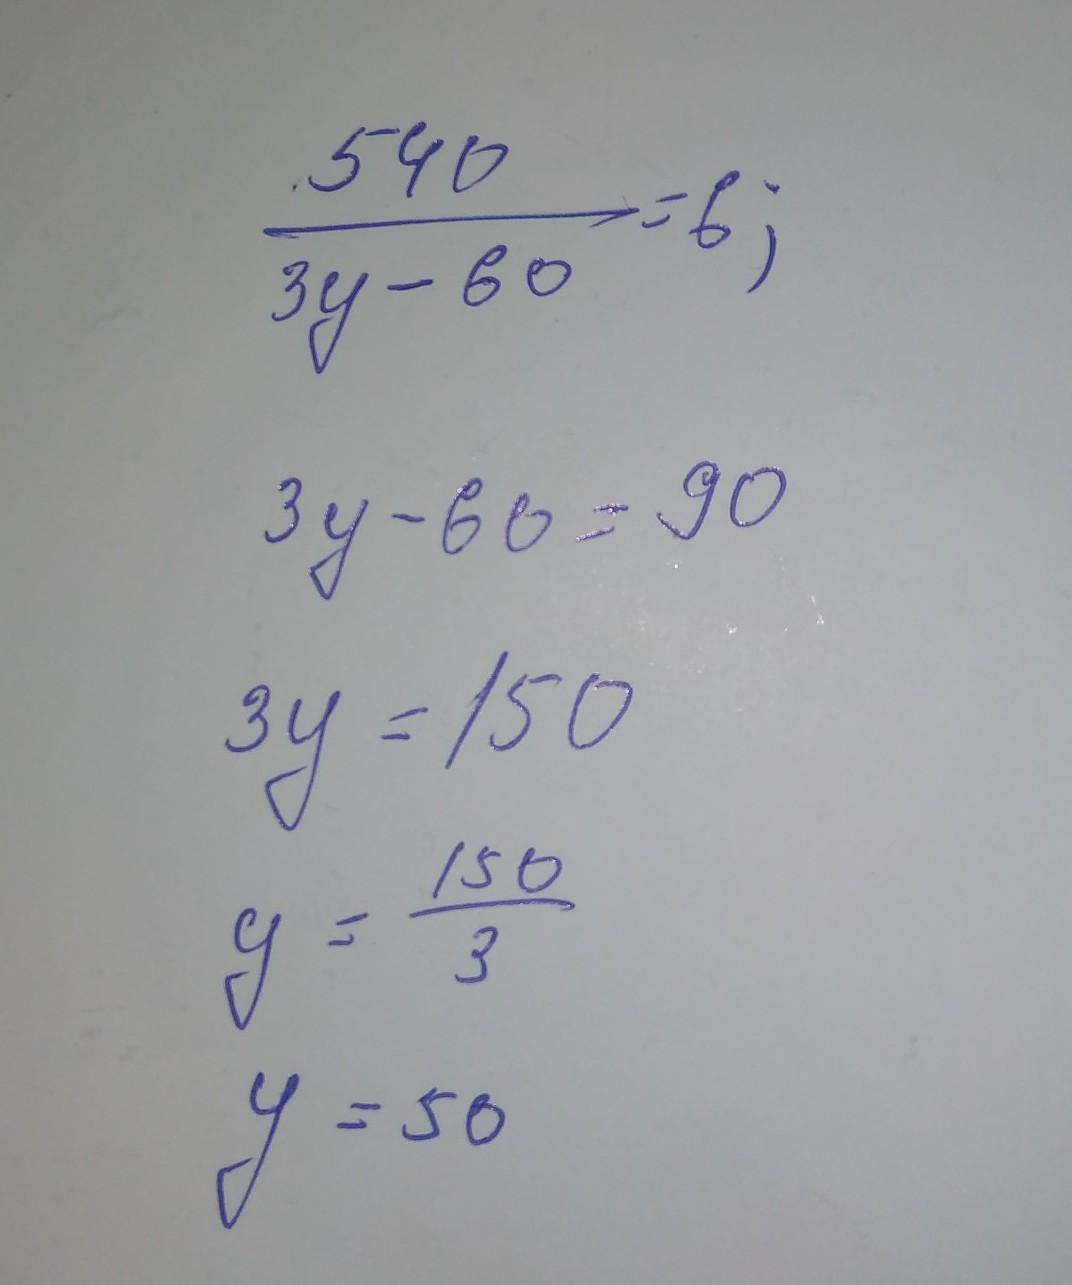 540
3y - 60 = 6;
3y - 60 = 90
3y = 150
y = 150/3
y = 50